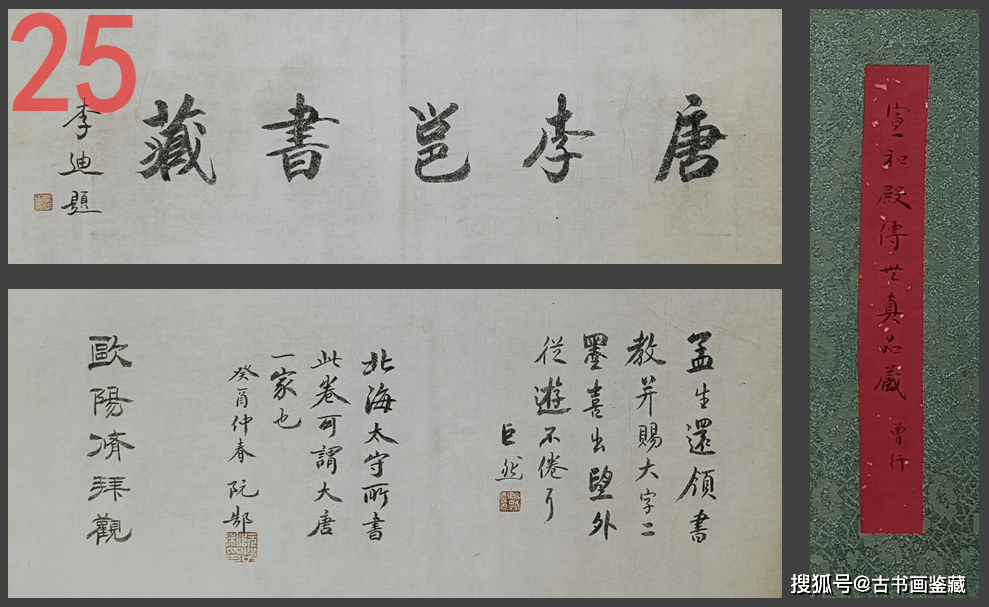 25
唐李邕書藏
李迪題
孟生還領書
教并賜大字二
墨喜出望外
從遊不倦可
巨然
北海太守所書
此卷可謂大唐
一家也
癸酉仲春阮郜
歐陽済拜觀
宣和殿傳世真品藏
曾行
搜狐号@古书画鉴藏